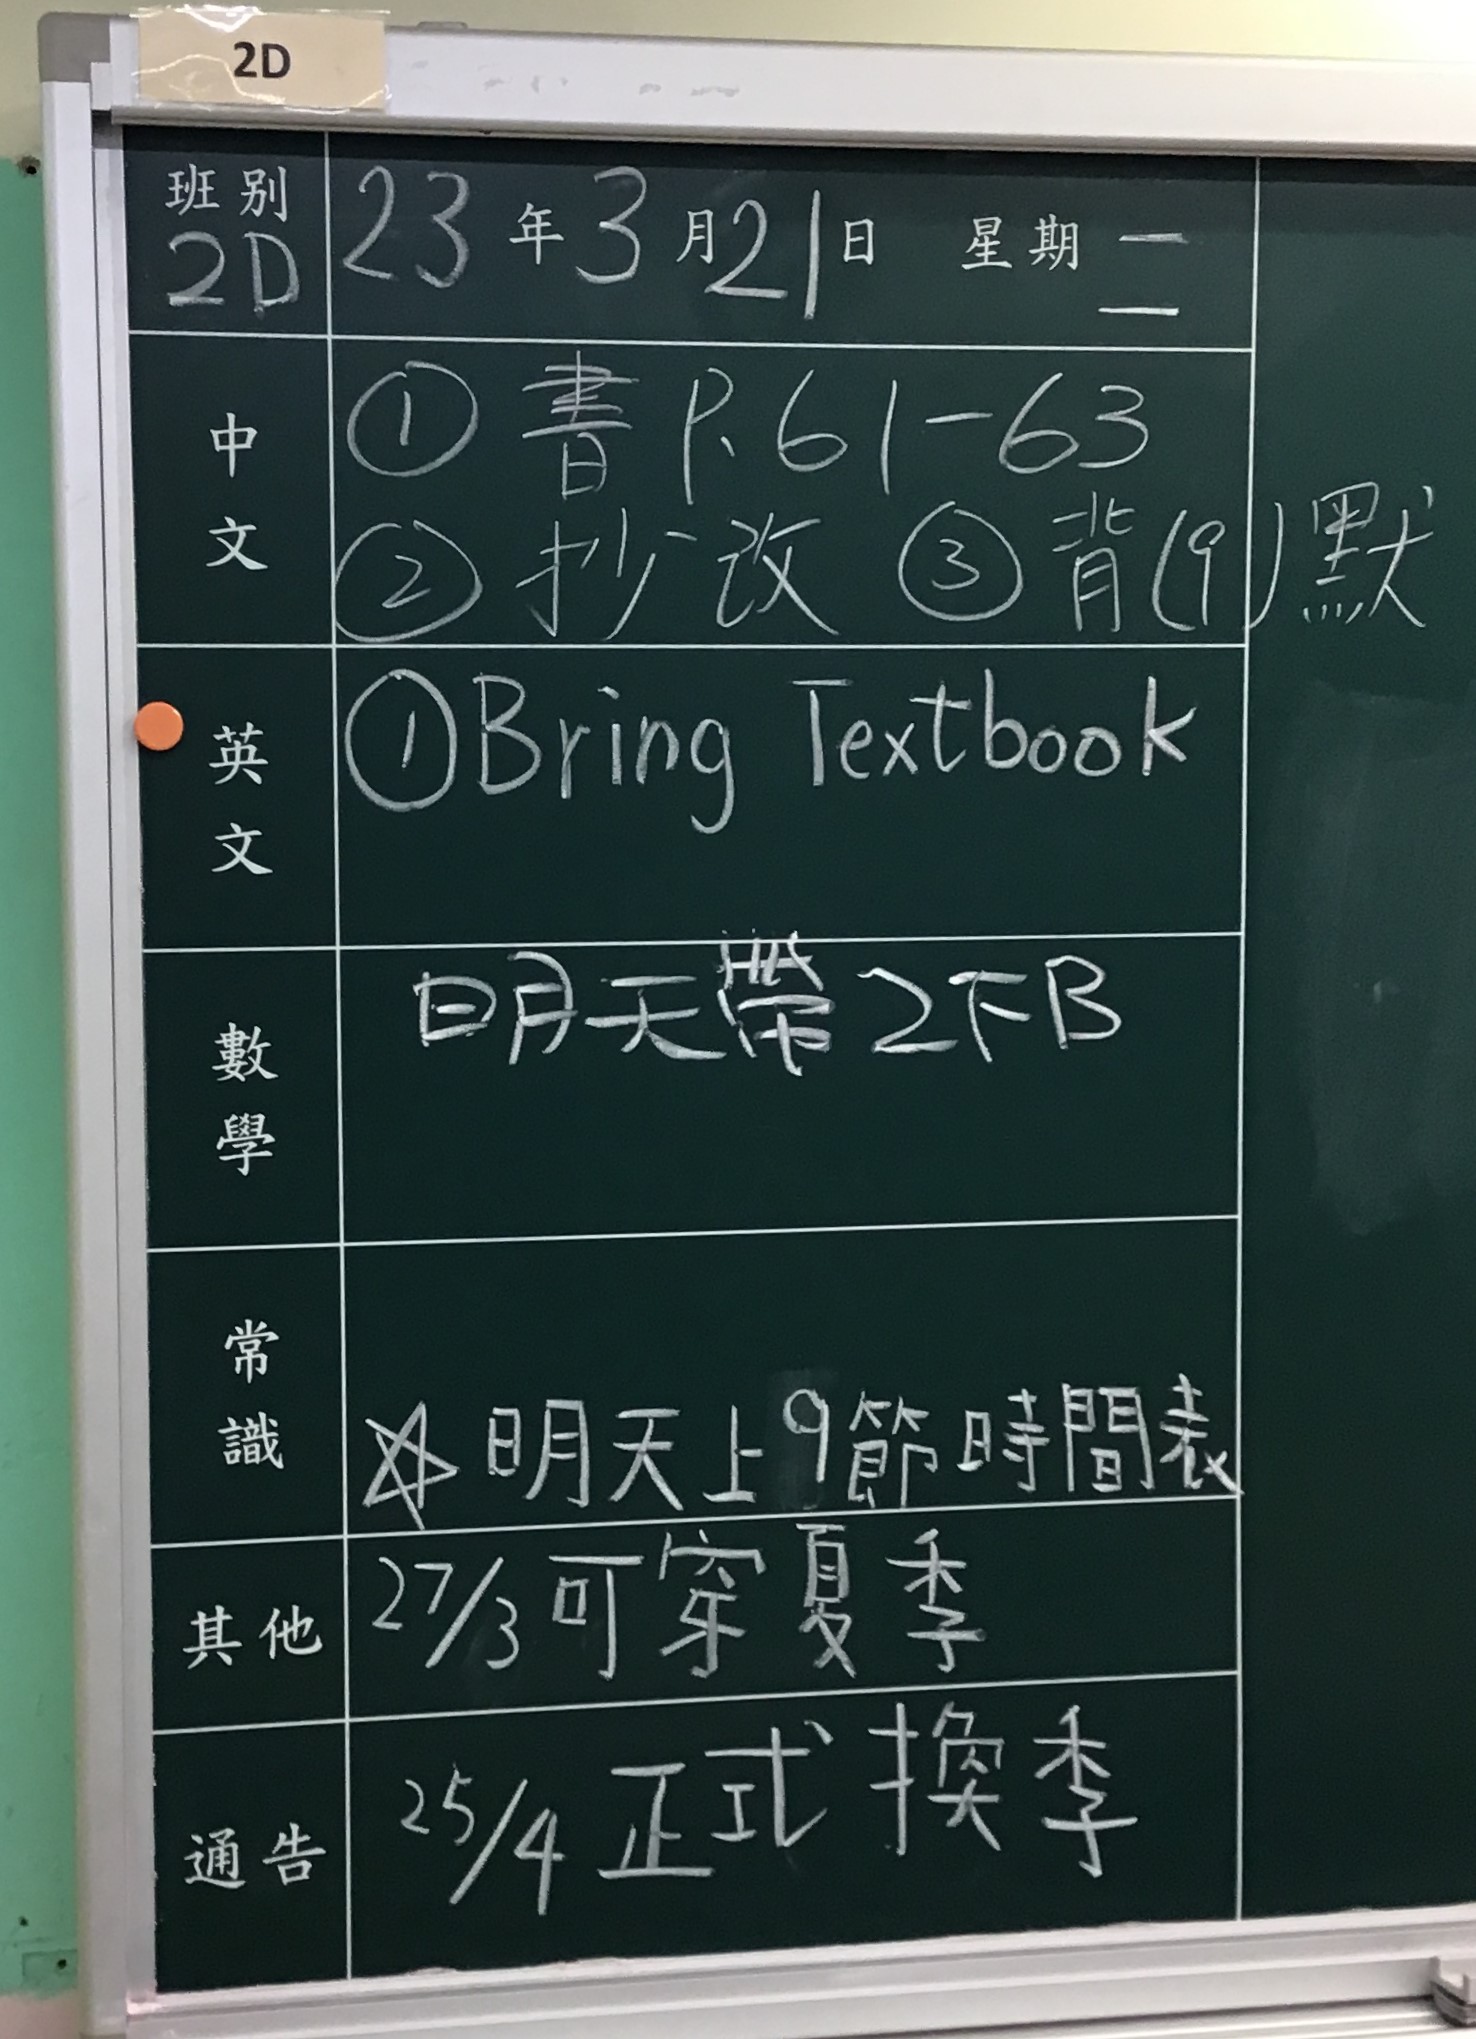 2D
班別 2D
23年3月21日 星期二
中文
① 書 P.61-63
② 抄改 ③ 背(9)默
英文
① Bring Textbook
數學
明天帶2下B
常識
☆ 明天上9節時間表
其他
27/3 可穿夏季
通告
25/4 正式換季